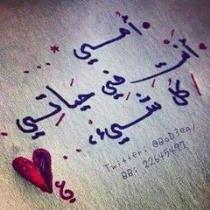 أمي
أنت في حياتي
كل شيء
Twitter: @BoD3ea/
BB: 22645497